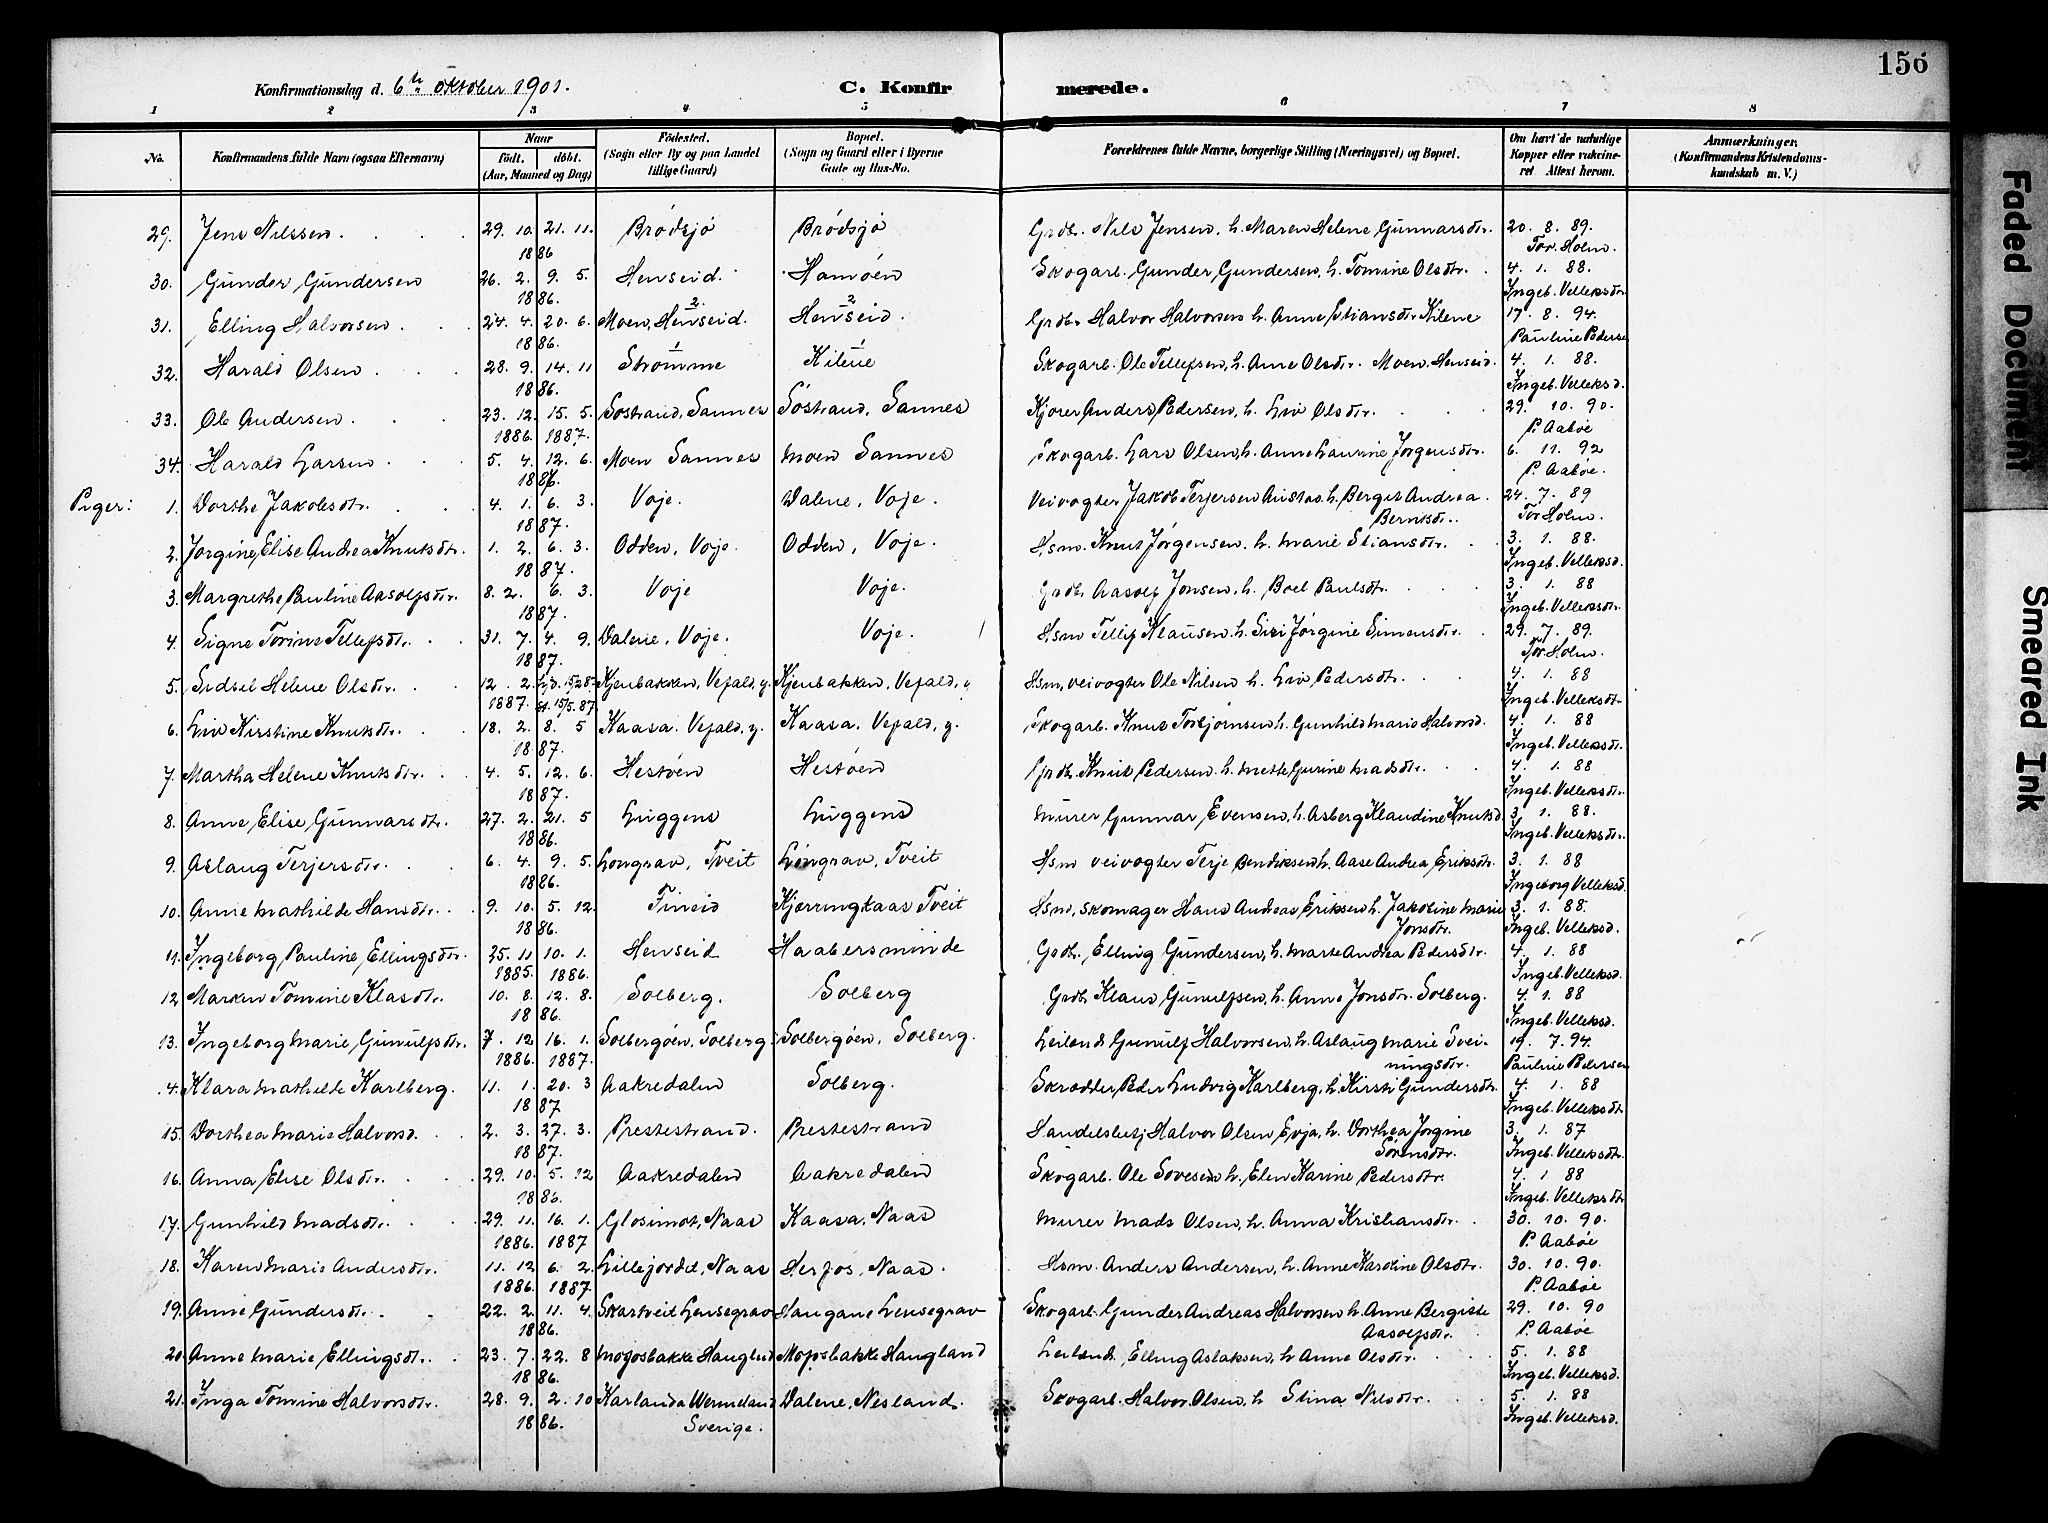 156
Konfirmationsdag d. 6te oktober 1901. C. Konfirmerede.
1 2 3 4 5 6 7 8
No. Konfirmandens fulde Navn (ogsaa Efternavn) Naar født, døbt. (Aar, Maaned og Dag) Fødested. (Sogn eller By og paa Landet tillige Gaard) Bopæl. (Sogn og Gaard eller i Byerne Gade og Hus-No. Forældrenes fulde Navne, borgerlige Stilling (Næringsvei) og Bopæl. Om havt de naturlige Kopper eller vakcineret Attest herom. Anmærkninger. (Konfirmandens Kristendomskundskab m. V.)
29. Jens Nilssen. 29. 10. 21. 11. 1886 Brødsjø Brødsjø Grdb. Nils Jensen, h. Maren Helene Gunnarsdtr. 20. 8. 89. Tor. Holm.
30. Gunder Gundersen 26. 2. 9. 5. 1886. Henseid. Hamøen Skogarb. Gunder Gundersen, h. Tomine Olsdtr. 4. 1. 88. Ingeb. Velleksdtr.
31. Elling Halvorsen. 24. 4. 20. 6. 1886. Moen, Henseid. 2 Henseid. 2 Grdbr Halvor Halvorsen h. Anne Stiansdtr Kilene 17. 8. 94. Pauline Pederse
32. Harald Olsen 28. 9. 14. 11 1886. Strømme 1 Kilene 1 Skogarb. Ole Tellefsen, h. Anne Olsdtr. Moen, Henseid. 4. 1. 88. Ingeb. Velleksd.
33. Ole Andersen 23. 12. 15. 5. 1886. 1887. Søstrand, Sannes Søstrand, Sannes Kjører Anders Pedersen, h. Liv Olsdtr. 29. 10. 90. P. Aabøe
34. Harald Larsen 5. 4. 12. 6. 1886. Moen Sannes Moen Sannes Skogarb. Lars Olsen, h. Anne Laurine Jørgensdtr. 6. 11. 92 P. Aabøe.
Piger: 1. Dorthe Jakobsdtr. 4. 1. 6. 3. 1887. Voje. Dalene, Voje. Veivogter Jakob Terjersen Austad h. Bergit Andrea Berntsdtr. 24. 7. 89 Tor Holm.
2. Jørgine Elise Andrea Knutsdtr. 1. 2. 6. 3. 1887. Odden, Voje. Odden, Voje. Hsm. Knut Jørgensen, h. Marie Stiansdtr. 3. 1. 88. Ingeb. Velleksd.
3. Margrethe Pauline Aasolfsdtr. 8. 2. 6. 3. 1887. Voje Voje. Grdb Aasolf Jonsen, h. Boel Paulsdtr. 3. 1. 88 Ingeb. Velleksdtr.
4. Signe Torine Tellefsdtr. 31. 7. 4. 9. 1887. Dalene, Voje. Voje. Hsm Tellef Klausen, h. Siri Jørgine Simensdtr. 29. 7. 89. Tor. Holm.
5. Sidsel Helene Olsdtr. 12. 2. 1887. Kjenbakken, Vefald, y. Kjenbakken, Vefald, y Hsm, veivogter Ole Nilsen h. Liv Pedersdtr. 4. 1. 88 Ingeb. Velleksdtr.
6. Liv Kirstine Knutsdtr. 18. 2. 8. 5 1887. Kaasa. Vefald, y. Kaasa. Vefald, y. Skogarb. Knut Torbjørnsen h. Gunhild Marie Halvorsd. 4. 1. 88 Ingeb. Velleksdtr.
7. Martha Helene Knutsdtr. 4. 5. 12. 6. 1887. Hestøen Hestøen Grdb. Knut Pedersen. h. Mette Gurine Madsdtr. 4. 1. 88 Ingeb. Velleksdtr.
8. Anne Elise Gunnarsdtr. 27. 2. 21. 5 1886. Luggens Luggens Murer Gunnar Evensen, h. Asberg Klaudine Knutsd. 3. 1. 88. Ingeb. Velleksdtr.
9. Aslaug Terjersdtr. 6. 4. 9. 5. 1886. Longrav, Tveit Longrav, Tveit Hsm veivogter Terje Bendiksen h. Aase Andrea Eriksdtr. 3. 1. 88 Ingeborg Velleksd.
10. Anne Mathilde Hansdtr. 9. 10. 5. 12. 1886. Tineid Kjærringkaas Tveit Hsm, skomager Hans Andreas Eriksen h. Jakobine Marie Jonsdtr. 3. 1. 88. Ingeb. Velleksd.
11. Ingeborg Pauline Ellingsdtr. 25. 11 10. 1. 1885. 1886. Henseid Haabersminde Grdb. Elling Gundersen, h. Marte Andrea Pedersdtr. 4. 1. 88 Ingeb. Velleksd.
12 Maren Tomine Klasdtr. 10. 8. 12. 8. 1886. Solberg. Solberg Grdb. Klaus Gunulfsen, h. Anne Jonsdtr. Solberg. 4. 1. 88 Ingeb. Velleksd.
13. Ingeborg Marie Gunulfsdtr. 7. 12 16. 1. 1886. 1887. Solbergøen, Solberg. Solbergøen, Solberg. Leilend Gunulf Halvorsen, h. Aslaug Marie Sveiningsdtr. 19. 7. 94. Pauline Pedersen
.4. Klara Mathilde Karlberg. 11. 1. 20. 3 1887 Aakredalen Solberg. Skrædder Peder Ludvig Karlberg, h. Kirsti Gundersdtr. 4. 1. 88 Ingeb. Velleksdtr.
15. Dorthea Marie Halvorsd. 2. 3. 27. 3. 1887. Prestestrand. Prestestrand Handelsbetj Halvor Olsen Evja, h. Dorthea Jørgine Sørensdtr. 3. 1. 87 Ingeb. Velleksdtr.
16. Anna Elise Olsdtr. 29. 10. 5. 12 1886. Aakredalen Aakredalen Skogarb. Ole Sovesen h. Elen Karine Pedersdtr. 4. 1 88 Ingeb. Velleksdtr
17. Gunhild Madsdtr. 29. 11. 16. 1. 1886. 1887 Glosimot, Naas Kaasa, Naas Murer Mads Olsen, h. Anna Kristiansdtr. 30. 10. 90. P. Aabøe
18. Karen Marie Andersdtr. 11. 12 6. 2. 1886. 1887. Lillejordet, Naas Herfos, Naas. Hsm. Anders Andersen, h. Anne Karoline Olsdtr. 30. 10. 90. P. Aabøe
19. Anne Gundersdtr. 22. 2. 11. 4. 1886. Skartveit Lensegrav Haugane Lensegrav Skogarb. Gunder Andreas Halvorsen h. Anne Bergitte Aasolfsdtr. 29. 10. 90 P. Aabøe
20. Anne Marie Ellingsdtr. 23. 7. 22. 8 1886. Mojosbakke Haugland Mojosbakke Haugland Leilend. Elling Aslaksen, h Anne Olsdtr. 5. 1. 88 Ingeb. Velleksd.
21. Inga Tomine Halvorsdtr. 28. 9. 2. 10 1886. Karlanda Wermeland Sverige. Dalene, Nesland. Skogarb. Halvor Olsen, h Stina Nilsdtr. 5. 1. 88 Ingeb. Velleksd.
Faded Document
Smeared Ink